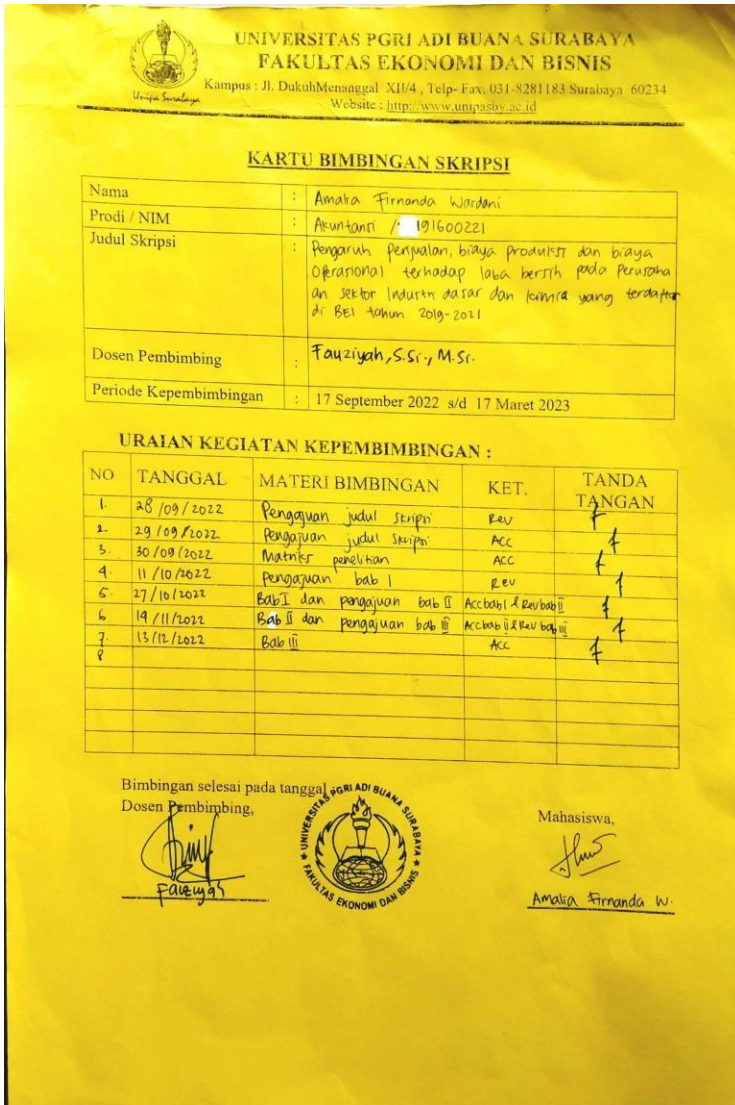 UNIVERSITAS PGRI ADI BUANA SURABAYA
FAKULTAS EKONOMI DAN BISNIS
Kampus : Jl. DukuhMenanggal XII/4 , Telp- Fax. 031-8281183 Surabaya 60234
Website : http://www.unipasby.ac.id
Unipa Surabaya
KARTU BIMBINGAN SKRIPSI
Nama : Amalia Firnanda Wardani
Prodi / NIM : Akuntansi / 191600221
Judul Skripsi : Pengaruh penjualan, biaya produksi dan biaya
Operasional terhadap laba bersih pada Perusaha
an sektor Industri dasar dan kimia yang terdaftar
di BEI tahun 2019-2021
Dosen Pembimbing : Fauziyah, S.Si., M.Si.
Periode Kepembimbingan : 17 September 2022 s/d 17 Maret 2023
URAIAN KEGIATAN KEPEMBIMBINGAN :
NO TANGGAL MATERI BIMBINGAN KET. TANDA TANGAN
1. 28/09/2022 Pengajuan judul skripsi Rev
2. 29/09/2022 Pengajuan judul skripsi ACC
3. 30/09/2022 Matriks penelitian ACC
4. 11/10/2022 Pengajuan bab I Rev
5. 27/10/2022 Bab I dan pengajuan bab II Acc bab I & Rev bab II
6 19/11/2022 Bab II dan pengajuan bab III Acc bab II & Rev bab III
7. 13/12/2022 Bab III ACC
8
Bimbingan selesai pada tanggal
Dosen Pembimbing,
Mahasiswa,
UNIVERSITAS PGRI ADI BUANA SURABAYA
FAKULTAS EKONOMI DAN BISNIS
Fauziyah
Amalia Firnanda W.